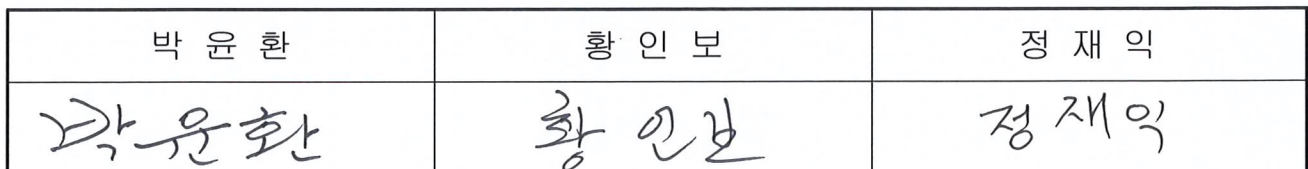 박 윤 환 황 인 보 정 재 익
박윤환 황인보 정재익